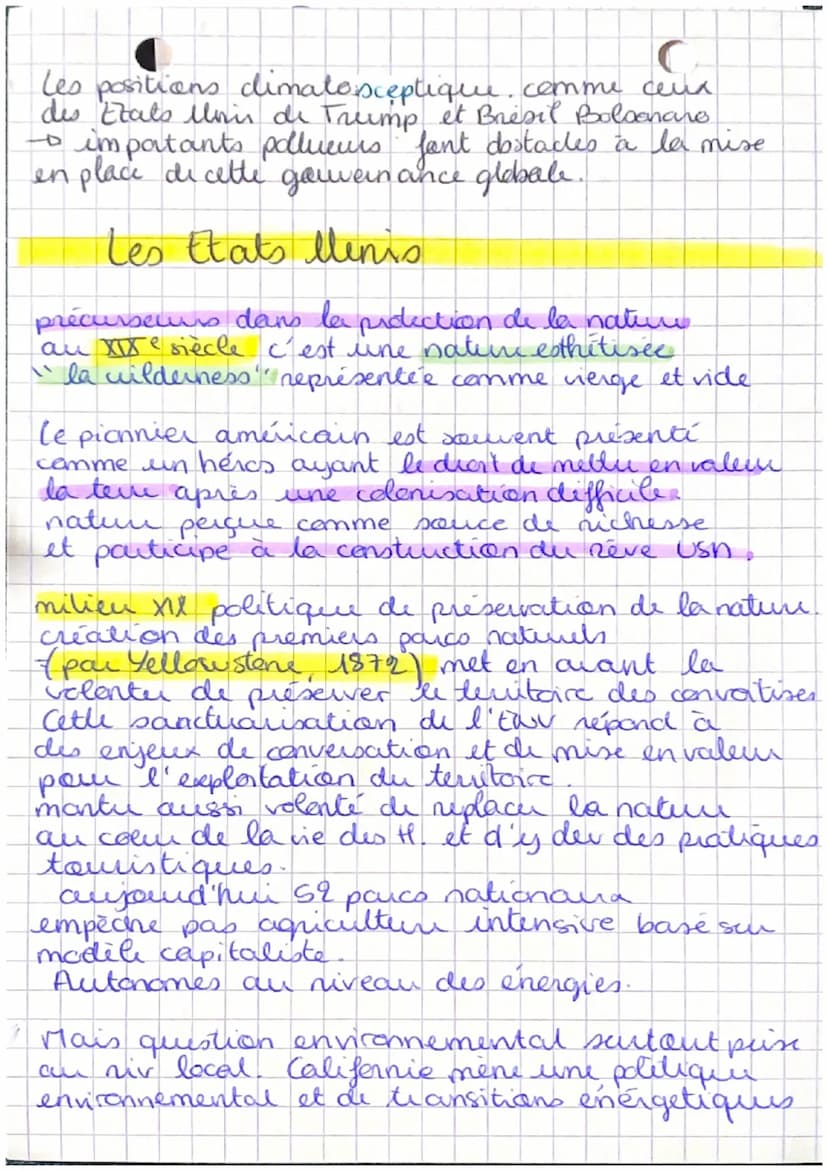 Les positions climatosceptique. comme ceux
des Etats Unis de Trump et Brésil Bolsonaro
→ importants pollueurs font obstacles à la mise
en place de cette gouvernance globale.
Les Etats Unis
précurseurs dans la protection de la nature
au XIXe siècle c'est une nature esthétisée
"la wilderness" représentée comme vierge et vide
Le pionnier américain est souvent présenté
comme un héros ayant le droit de mettre en valeur
la terre après une colonisation difficile.
nature perçue comme source de richesse
et participe à la construction du rêve USA.
milieu XIX politique de préservation de la nature.
création des premiers parcs naturels
(parc Yellowstone, 1872) met en avant la
volonter de préserver le territoire des convoitises
Cette sanctuarisation de l'env répond à
des enjeux de conversation et de mise en valeur
pour l'exploitation du territoire.
montre aussi volonté de replacer la nature
au coeur de la vie des H. et d'y dev des pratiques
touristiques.
aujourd'hui 52 parcs nationaux
empêche pas agriculture intensive basé sur
modèle capitaliste.
Autonomes au niveau des énergies.
Mais question environnemental surtout prise
au niv local. Californie mène une politique
environnemental et de transitions énergetiques